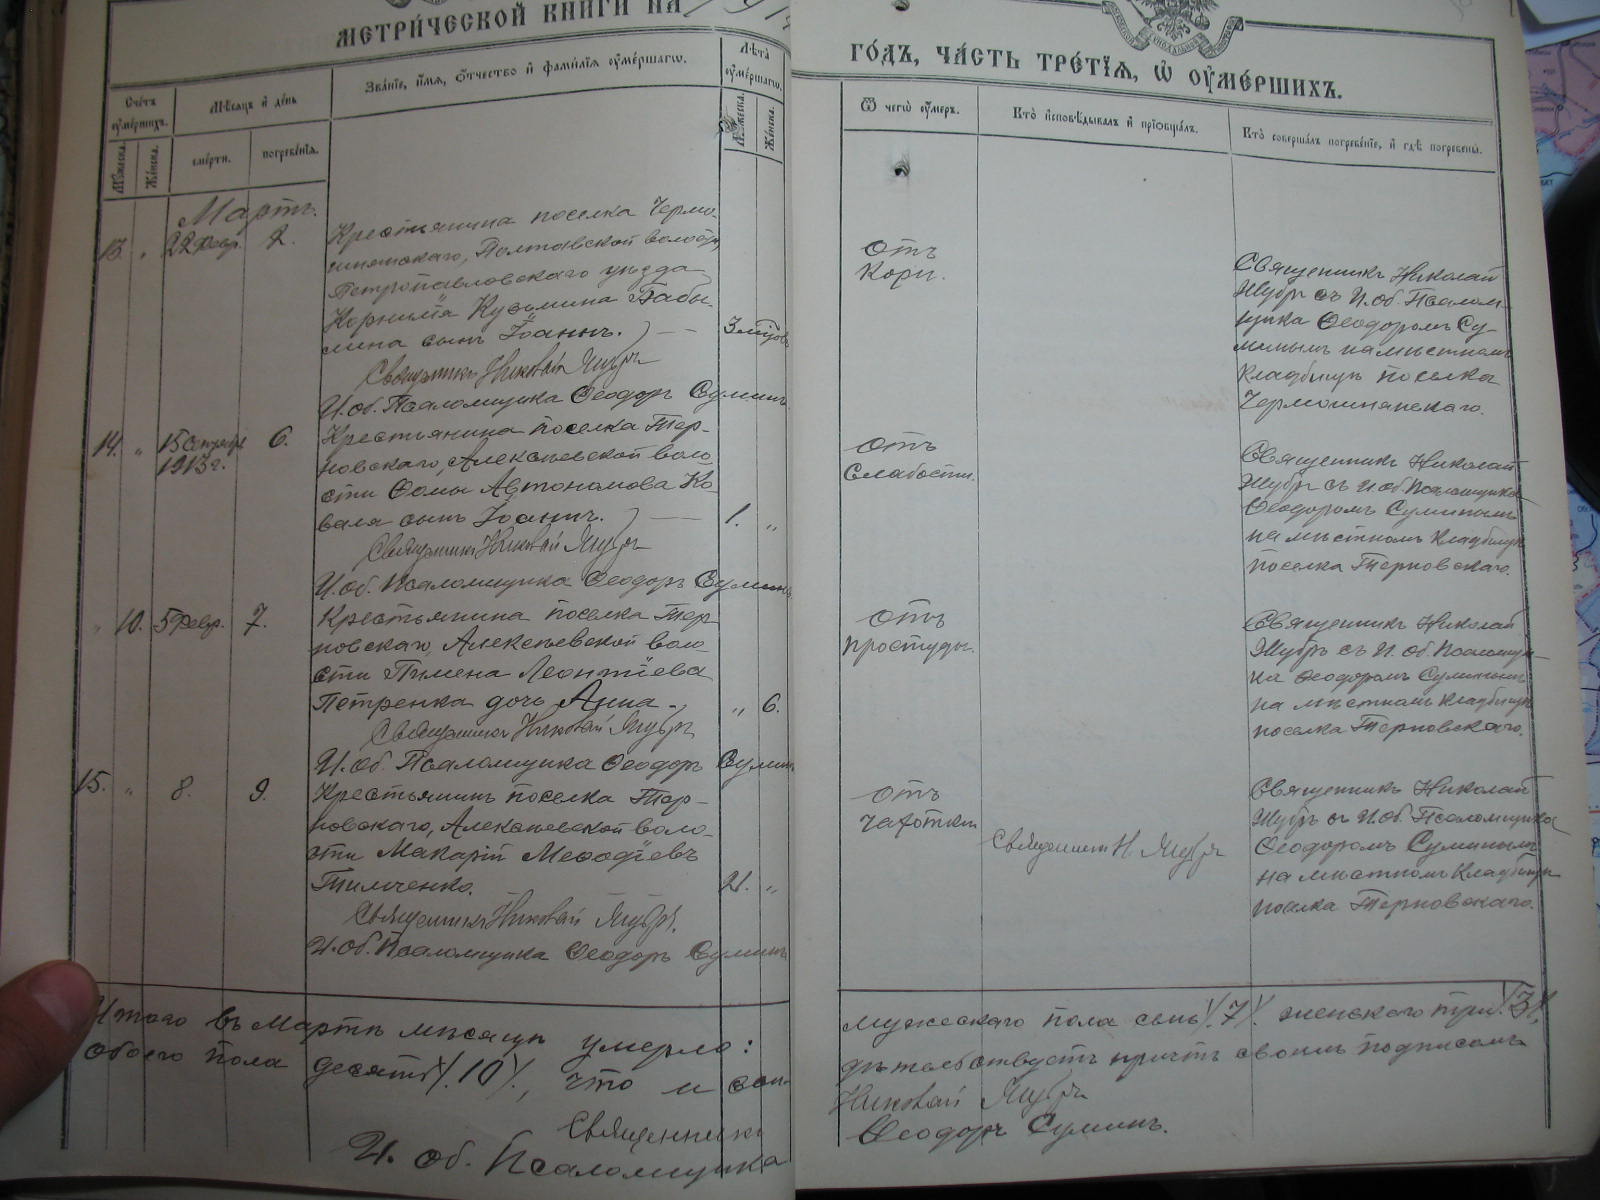 МЕТРИ́ЧЕСКОЙ КНИГИ НА
ГО́ДЪ, ЧА́СТЬ ТРЕ́ТІЯ, Ѽ ОУМЕ́РШИХЪ.
Сче́тъ оуме́ршихъ.
Мѣ́сяцъ и де́нь
Зва́ніе, и́мя, о́тчество и фами́лія оуме́ршагѡ.
Лѣ́та оуме́ршагѡ.
Му́жеска.
Же́нска.
сме́рти.
погребе́нія.
Му́жеска.
Же́нска.
Ѿ чегѡ̀ оу́меръ.
Кто̀ исповѣ́дывалъ и пріѡбща́лъ.
Кто̀ соверша́лъ погребе́ніе, и гдѣ̀ погребены̀.
Мартъ.
13. „ 22 февр. 2.
Крестьянина поселка Чермо-
шнянскаго, Полтавской волости,
Петропавловскаго уѣзда
Корнилія Кузьмина
сынъ Іоаннъ.
Священникъ Николай
И. об. Псаломщика Ѳеодоръ Суминъ.
отъ
кори.
Священникъ Николай
съ И. об. Псалом-
щика Ѳеодоромъ Су-
минымъ на мѣстномъ
кладбищѣ поселка
Чермошнянскаго.
14. „ 15
1913 г. 6.
Крестьянина поселка Тер-
новскаго, Алексѣевской воло-
сти Ѳомы Автономова Ко-
валя сынъ Іоаннъ. 1. „
Священникъ Николай
И. об. Псаломщика Ѳеодоръ Суминъ
отъ
слабости.
Священникъ Николай
съ И. об. Псаломщика
Ѳеодоромъ Суминымъ
на мѣстномъ кладбищѣ
поселка Терновскаго.
„ 10. 5 февр. 7.
Крестьянина поселка Тер-
новскаго, Алексѣевской воло-
сти Пимена Леонтіева
Петренка дочь Анна. „ 6.
Священникъ Николай
И. об. Псаломщика Ѳеодоръ Суминъ
отъ
простуды.
Священникъ Николай
съ И. об. Псаломщи-
ка Ѳеодоромъ Суминымъ
на мѣстномъ кладбищѣ
поселка Терновскаго.
15. „ 8. 9.
Крестьянинъ поселка Тер-
новскаго, Алексѣевской воло-
сти Макарій Меѳодіевъ
Тимченко. 21. „
Священникъ Николай
И. об. Псаломщика Ѳеодоръ Суминъ
отъ
чахотки
Священникъ Н.
Священникъ Николай
съ И. об. Псаломщика
Ѳеодоромъ Суминымъ
на мѣстномъ кладбищѣ
поселка Терновскаго.
Итого въ Мартѣ мѣсяцѣ умерло:
обоего пола десять /.10/., что и сви-
Священникъ
И. об. Псаломщика
мужескаго пола семь /.7/. женскаго три /.3/.
дѣтельствуетъ причтъ своимъ подписомъ
Николай
Ѳеодоръ Суминъ.